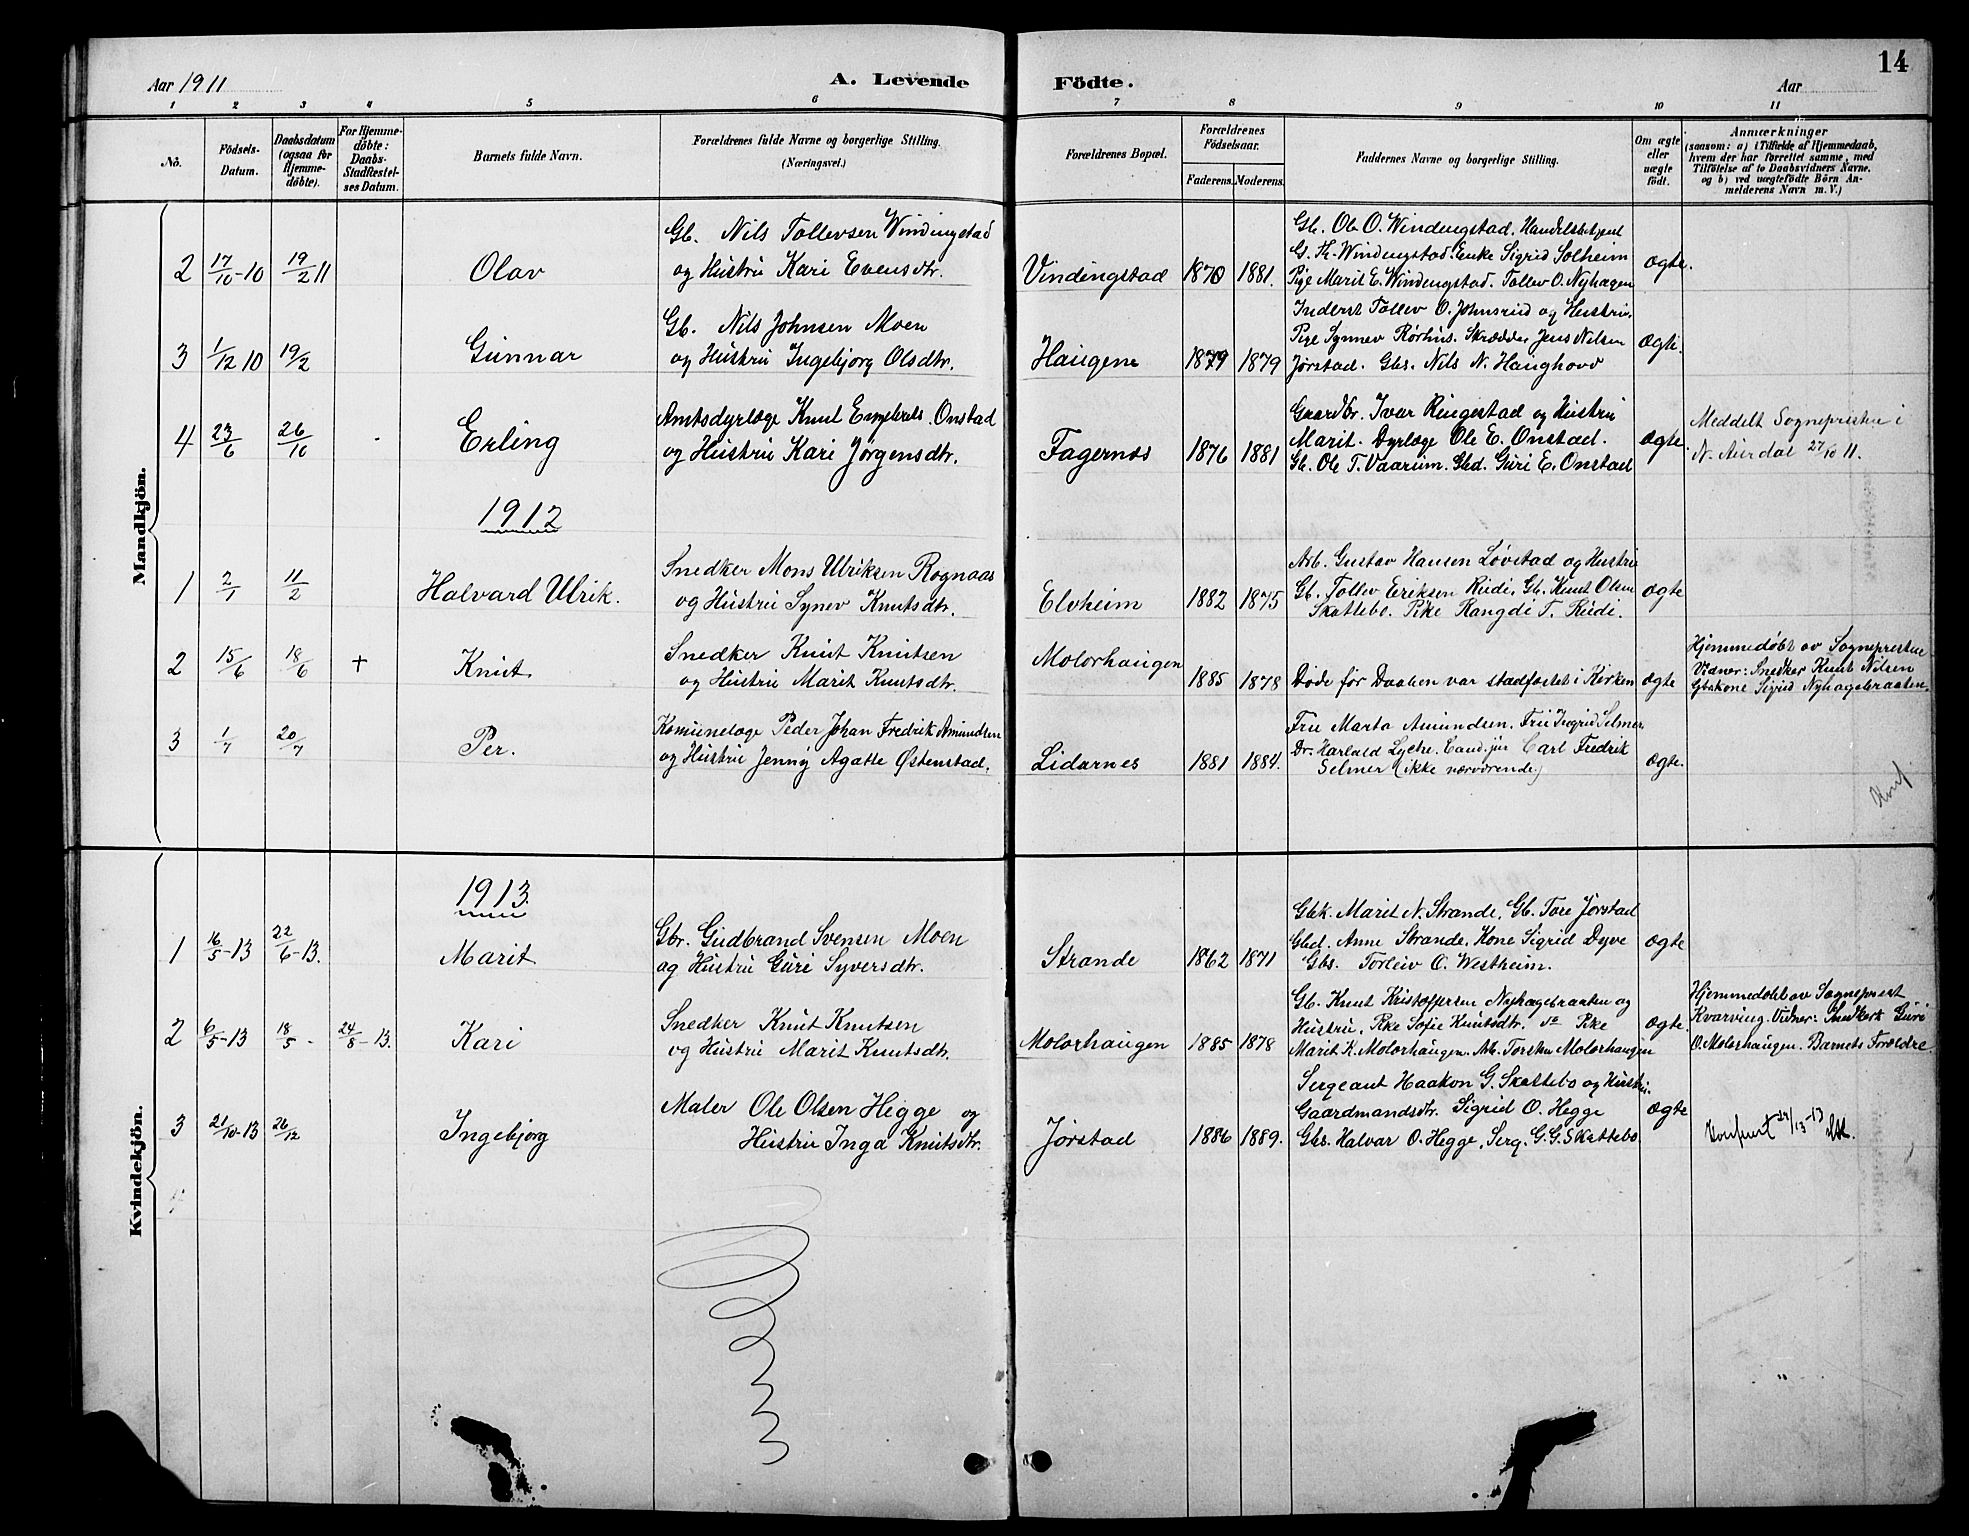 14
Aar 1911
A. Levende Födte.
Aar
1 2 3 4 5 6 7 8 9 10 11
No.
Födsels-Datum.
Daabsdatum (ogsaa for Hjemme-döbte).
For Hjemme-döbte: Daabs-Stadfæstel-ses Datum.
Barnets fulde Navn.
Forældrenes fulde Navne og borgerlige Stilling. (Næringsvei.)
Forældrenes Bopæl.
Forældrenes Födselsaar.
Faderens. Moderens.
Faddernes Navne og borgerlige Stilling.
Om ægte eller uægte födt.
Anmærkninger
(saasom: a) i Tilfælde af Hjemmedaab,
hvem der har forrettet samme, med
Tilföielse af to Daabsvidners Navne.
og b) ved uægtefödte Börn An-
melderens Navn m. V.)
Mandkjön.
2 17/10-10 19/2 11 Olav
Gb. Nils Tollevsen Windingstad
og Hustru Kari Evensdtr.
Vindingstad 1870 1881.
Gb. Ole O. Windingstad. Handelsbetjent
G. Th. Windingstad. Enke Sigrid Solheim
Pige Marit E. Windingstad. Tollev O. Nyhagen
ægte.
3 1/12 10 19/2 Gunnar
Gb. Nils Johnsen Moen
og Hustru Ingebjørg Olsdtr.
Haugene 1879 1879
Inderst Tollev O. Johnsrud og Hustru.
Pige Synnev Rørhus. Skrædder Jens Nilsen
Jørstad. Gbs. Nils N. Haughovd
ægte.
4 23/6 26/10 Erling
Amtsdyrlæge Knut Engebrets. Onstad
og Hustru Kari Jørgensdtr.
Fagernes 1876 1881
Gaardbr. Ivar Ringestad og Hustru
Marit. Dyrlæge Ole E. Onstad.
Gb. Ole T. Vaarum. Gbd. Guri E. Onstad
ægte.
Meddelt Sogneprესten i
N. Aurdal 27/10 11.
1912
1 2/1 11/2 Halvard Ulrik.
Snedker Mons Ulriksen Rognaas
og Hustru Synev Knutsdtr.
Elvheim 1882 1875
Arb. Gustav Hansen Løvstad og Hustru
Gb. Tollev Eriksen Rudi, Gb. Knut Olsen
Skattebo. Pike Rangdi T. Rudi.
ægte
2 15/6 18/6 + Knut
Snedker Knut Knutsen
og Hustru Marit Knutsdtr.
Molorhaugen 1885 1878
Døde før Daaben var stadfæstet i Kirken
ægte
Hjemmedøbt av Sognepresten
Vidner: Snedker Knut Nilsen
Gbskone Sigrid Nyhagebraaten.
3 1/7 20/7 Per.
Komunelæge Peder Johan Fredrik Amundsen
og Hustru Jenny Agatte Østenstad.
Lidarnes 1881 1884.
Fru Marta Amundsen, Fru Ingrid Selmer
Dr. Harlald Lyche. Cand. jur Carl Fredrik
Selmer (ikke nærværende.)
ægte.
Konf.
Kvindekjön.
1913.
1 16/5-13 22/6-13. Marit
Gbr. Gudbrand Svensen Moen
og Hustru Guri Syversdtr.
Strande 1862 1871
Gbk. Marit N. Strande, Gb. Tore Jørstad
Gbd. Anne Strande. Kone Sigrid Dyve
Gbs. Torleiv O. Westheim.
ægte
2 6/5-13 18/5 - 24/8-13. Kari
Snedker Knut Knutsen
og Hustru Marit Knutsdtr.
Molorhaugen 1885 1878
Gb. Knut Kristoffersen Nyhagebraaten og
Hustru, Pike Sofie Knutsdtr. Pike
Marit K. Molorhaugen. Arb. Torsten Molorhaugen
ægte.
Hjemmedøbt av Sogneprest
Kvarving. Vidner: Snedkerk Guri
O. Molorhaugen. Barnets Forældre.
3 21/10-13 26/12 Ingebjørg
Maler Ole Olsen Hegge og
Hustru Inga Knutsdtr.
Jørstad 1886 1889.
Sergeant Haakon G. Skattebo og Hustru.
Gaardmandsdtr. Sigrid O. Hegge
Gbs. Halvar O. Hegge, Serg. G. G. Skattebo
ægte
4